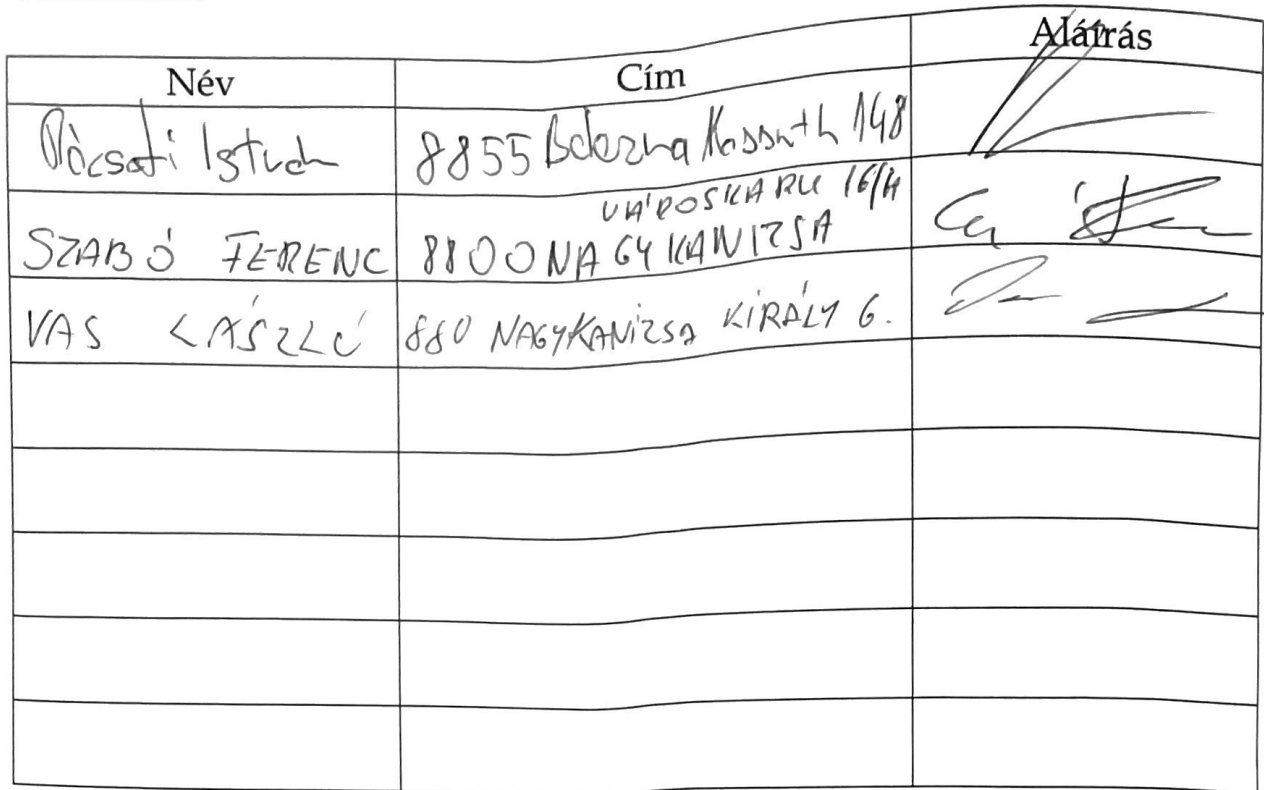 Név Cím Aláírás
Pócsati István 8855 Belezna Kossuth 148
VÁROSKAPU 16/4
SZABÓ FERENC 8800 NAGYKANIZSA
VAS LÁSZLÓ 880 NAGYKANIZSA KIRÁLY 6.